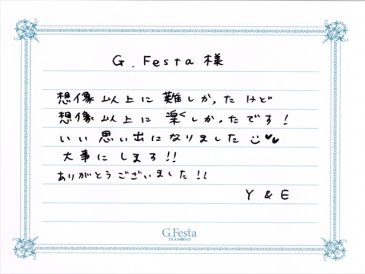 G.Festa 様
想像以上に難しかったけど
想像以上に楽しかったです！
いい思い出になりました☺♥♥
大事にしまる!!
ありがとうございました!!
Y & E
G.Festa
DIAMOND